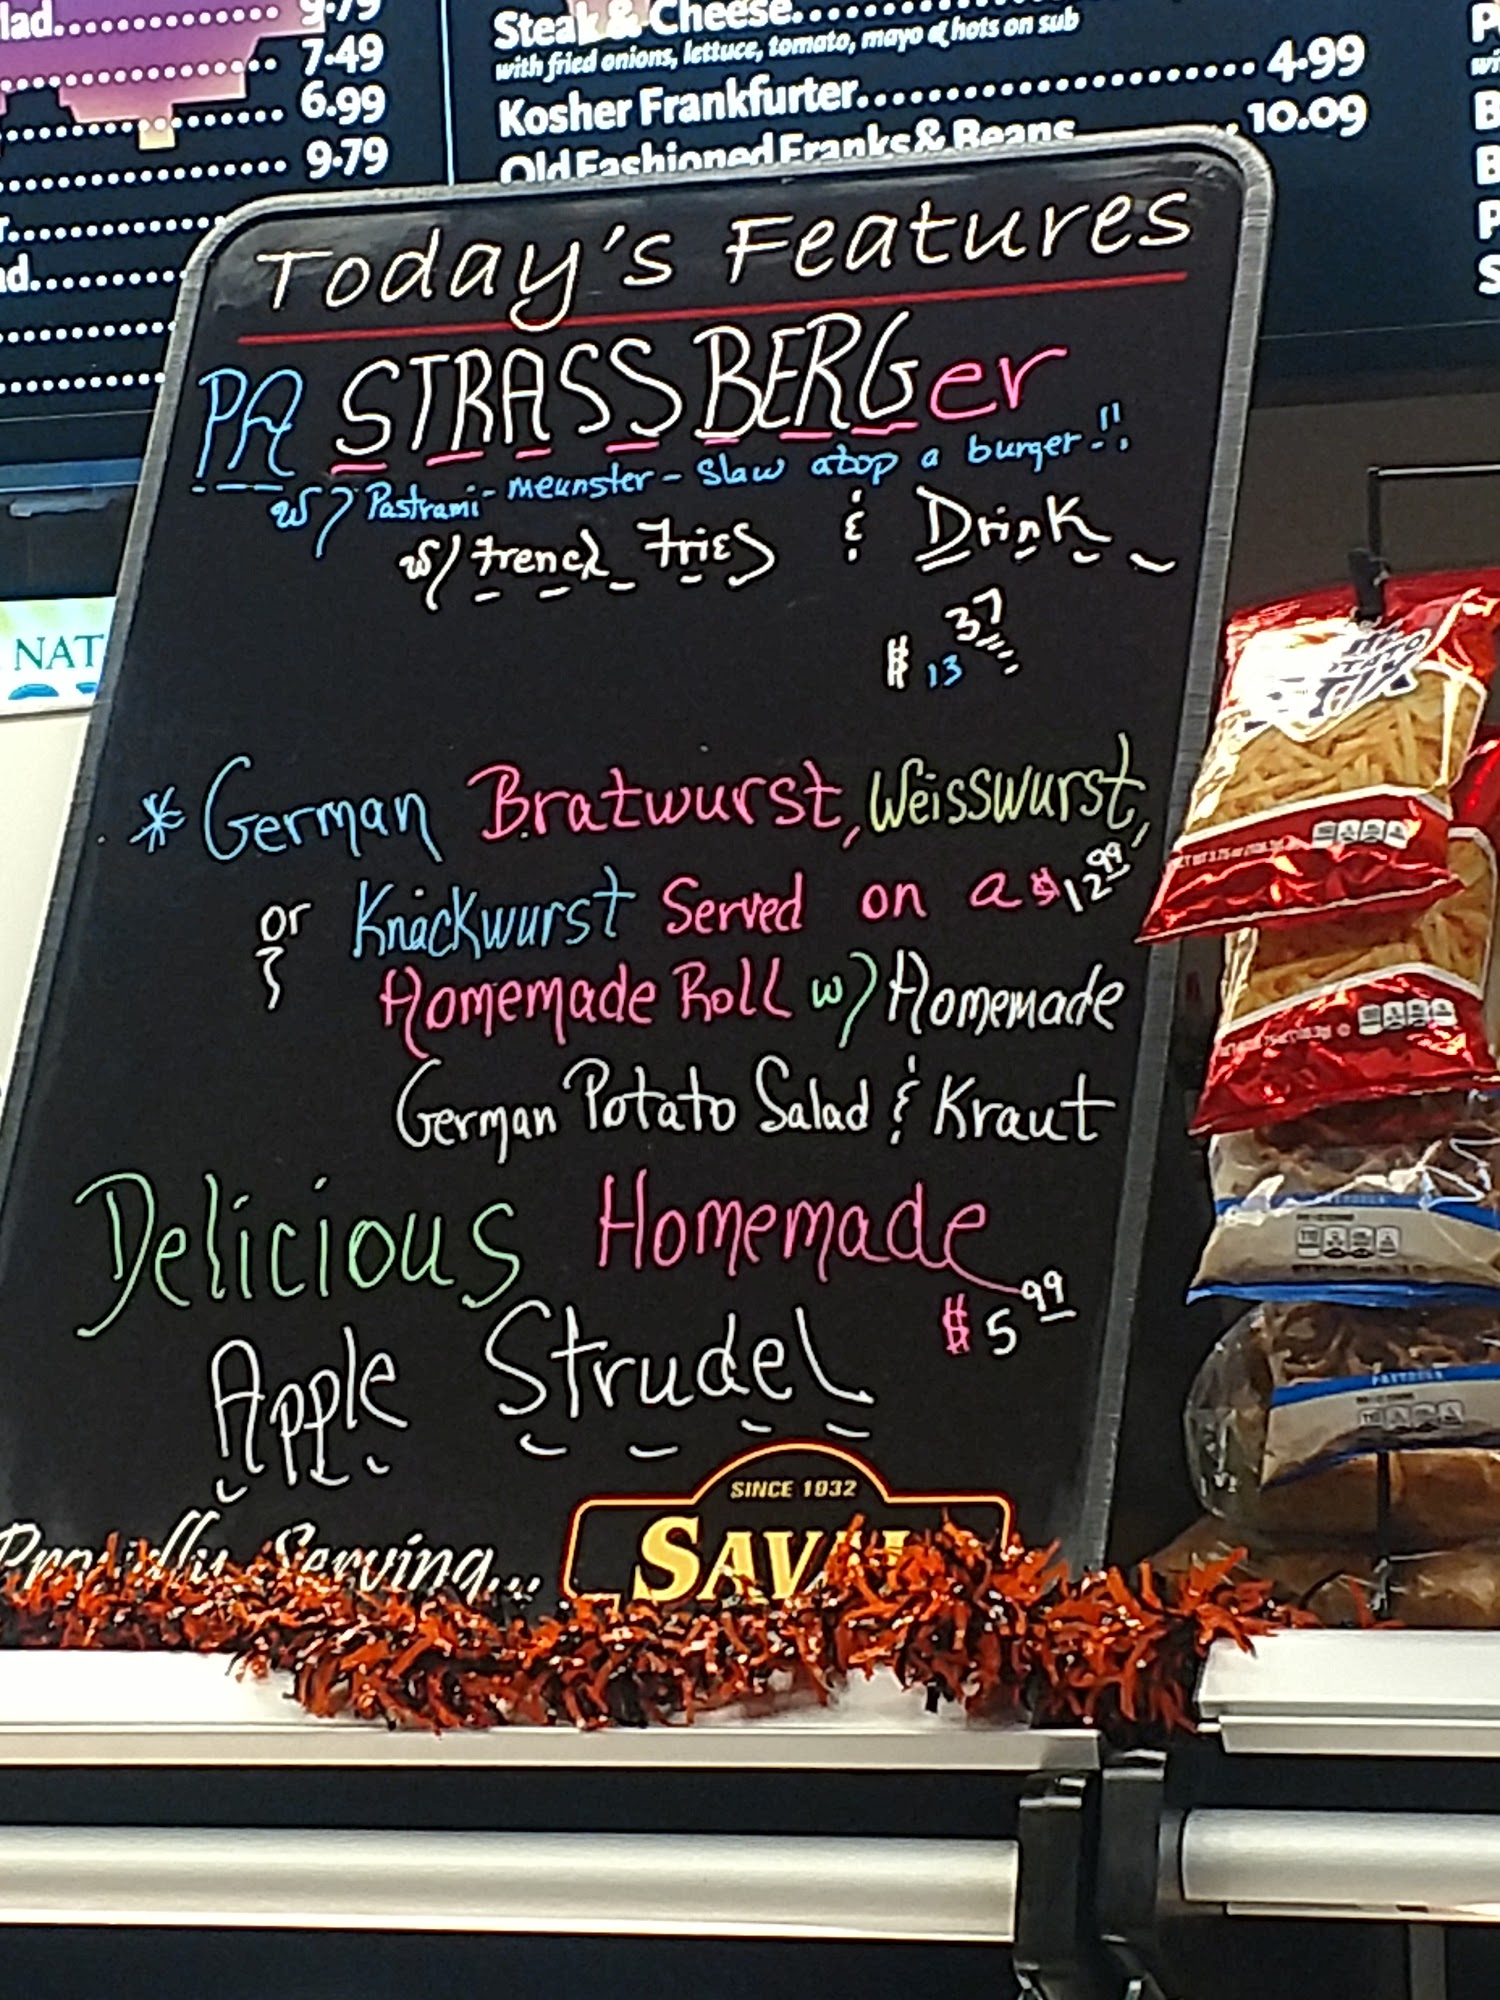 9.79
7.49
6.99
9.79
Steak & Cheese
with fried onions, lettuce, tomato, mayo & hots on sub
Kosher Frankfurter 4.99
Old Fashioned Franks & Beans 10.09
Today's Features
PA STRASSBERGer
w/ Pastrami - meunster - slaw atop a burger!!
w/ French Fries & Drink
$13 37
NAT
* German Bratwurst, Weisswurst,
or Knackwurst Served on a $12 99
Homemade Roll w/ Homemade
German Potato Salad & Kraut
Delicious Homemade
$5 99
Apple Strudel
SINCE 1932
Proudly Serving...